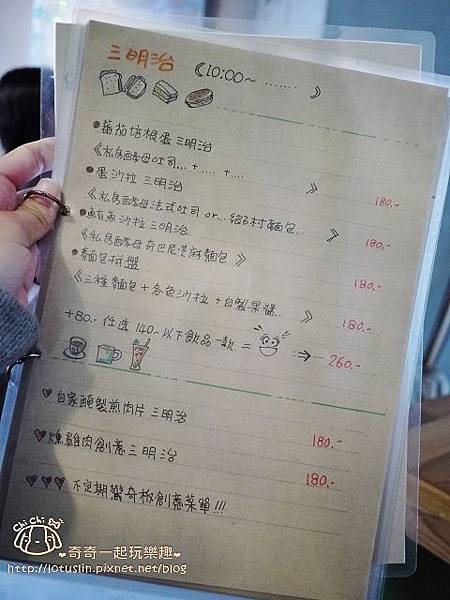 三明治 《10:00~ ....... 》
●蕃茄培根蛋 三明治
《私房酵母吐司... + .... + .... 》 180.-
●蛋沙拉 三明治
《私房酵母法式吐司 or... 鄉村麵包... 》 180.-
●鮪魚沙拉 三明治
《私房酵母奇巴尼芝麻麵包》 180.-
●麵包拼盤
《三種麵包+各色沙拉+自製果醬.. 》 180.-
+80.- 任選 140.-以下飲品一款 = ...→... 260.-
♥自家醃製煎肉片 三明治 180.-
♥燻雞肉創意三明治 180.-
♥♥♥ 不定期驚奇板創意菜單!!!
Chi Chi Bo!
❤奇奇一起玩樂趣❤
http://lotuslin.pixnet.net/blog